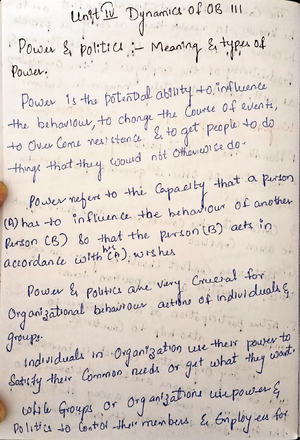 Unit IV Dynamics of OB III
Power & politics :- Meaning & types of
Power.
Power is the potential ability to influence
the behaviour, to change the Course of events,
to Over Come resistance & to get people to do
things that they would not otherwise do.
Power refers to the Capacity that a person
(A) has to influence the behaviour of another
Person (B) So that the person (B) acts in
accordance with his (A), wishes
Power & Politics are very Crucial for
Organizational behaviour actions of individuals &
groups.
Individuals in Organization use their power to
Satisfy their Common needs or get what they want.
While Groups or Organizations use power &
Politics to Control their members, & Employees for